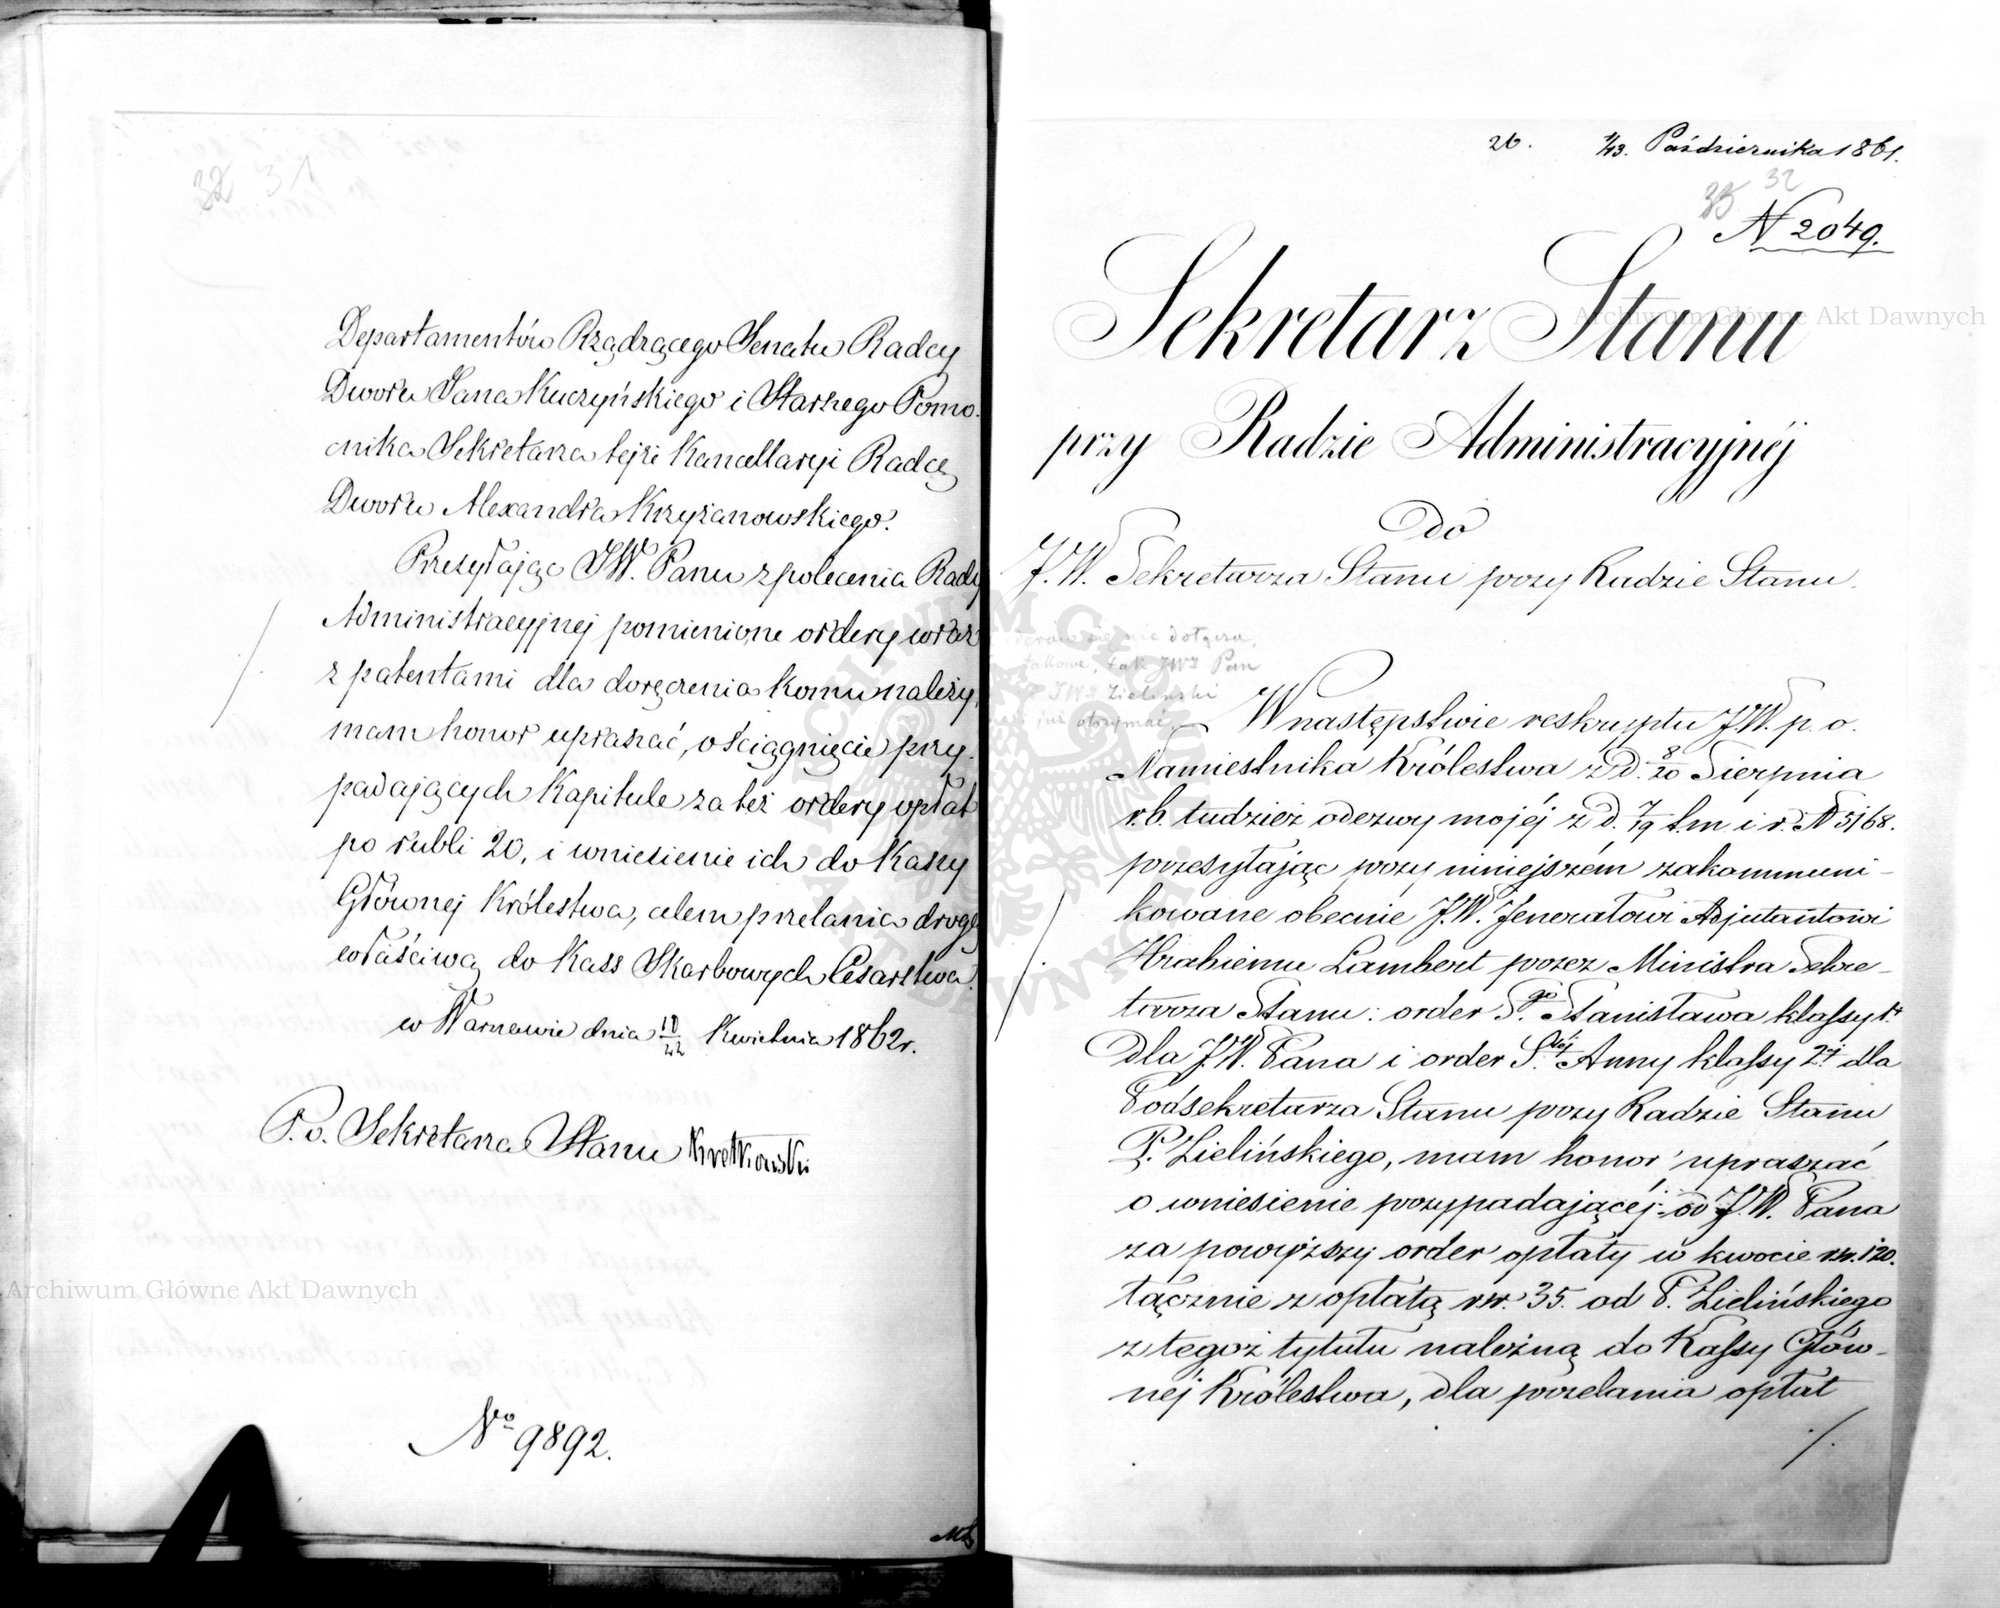 32 31
Departamentów Rządzącego Senatu Radcy
Dworu Jana Kuczyńskiego i Starszego Pomo-
cnika Sekretarza tejże Kancellaryi Radcy
Dworu Alexandra Krzyżanowskiego.
Przesyłając JW. Panu z polecenia Rady
Administracyjnej pomienione ordery wraz
z patentami dla doręczenia komu należy,
mam honor upraszać, o ściągnięcie przy-
padających Kapitule za też ordery opłat
po rubli 20, i wniesienie ich do Kassy
Głównej Królestwa, celem przelania drogą
właściwą do Kass Skarbowych Cesarstwa.
w Warszawie dnia 10/22 Kwietnia 1862 r.
P.o. Sekretarza Stanu Kretkowski
No 9892.
26. 1/13. Października 1861.
32
N 2049.
Sekretarz Stanu
przy Radzie Administracyjnéj
Do
J.W. Sekretarza Stanu przy Radzie Stanu.
nie dołącza,
takowe, tak JWJ Pan
JWJ Zieliński
już otrzymać
W następstwie reskryptu J.W. p. o.
Namiestnika Królestwa z d. 8/20 Sierpnia
r.b. tudzież odezwy mojéj z d. 7/19 t.m. i r. N 5168.
przesyłając przy niniejszém zakommuni-
kowane obecnie J.W. Jenerałowi Adjutantowi
Hrabiemu Lambert przez Ministra Sekre-
tarza Stanu: order Sgo. Stanisława klassy 1éj
dla J.W. Pana i order Stéj Anny klassy 2éj dla
Podsekretarza Stanu przy Radzie Stanu
P. Zielińskiego, mam honor upraszać
o wniesienie przypadającéj od J.W. Pana
za powyższy order opłaty w kwocie rsr. 120.
łącznie z opłatą rsr. 35. od P. Zielińskiego
z tegoż tytułu należną do Kassy Głów-
néj Królestwa, dla przelania opłat
./.
Archiwum Główne Akt Dawnych
Archiwum Główne Akt Dawnych
ARCHIWUM GŁÓWNE AKT DAWNYCH